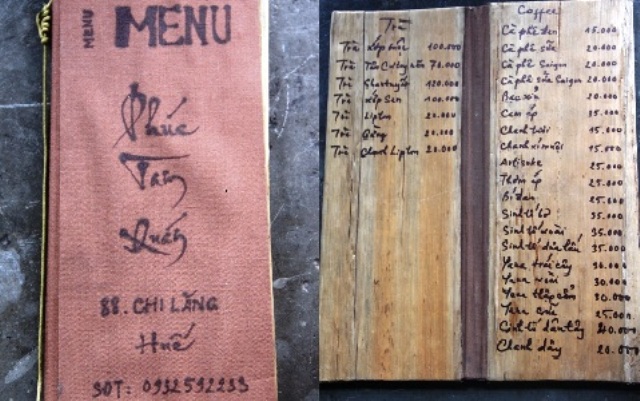 MENU
MENU
Phúc
Tâm
Quán
88. CHI LĂNG
Huế
SĐT: 0932592233
Trà
Trà 100.000
Trà 70.000
Trà Shantuyết 120.000
Trà Búp Sen 100.000
Trà Lipton 20.000
Trà Gừng 20.000
Trà Chanh Lipton 20.000
Coffee
Cà phê đen 15.000
Cà phê sữa 20.000
Cà phê Saigon 20.000
Cà phê sữa Saigon 20.000
Bạc xỉu 20.000
Cam ép 35.000
Chanh tươi 15.000
Chanh xí muội 15.000
Artisote 25.000
Thơm ép 25.000
Bí đao 25.000
Sinh tố bơ 35.000
Sinh tố xoài 35.000
Sinh tố dừa 35.000
Yaua trái cây 30.000
Yaua 30.000
Yaua thập cẩm 30.000
Yaua 25.000
Sinh tố dâu tây 40.000
Chanh dây 20.000